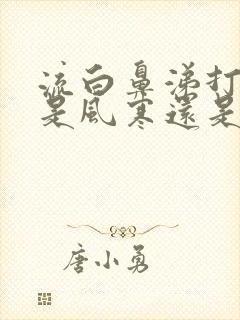 流白鼻涕打
是風寒還是
唐小勇